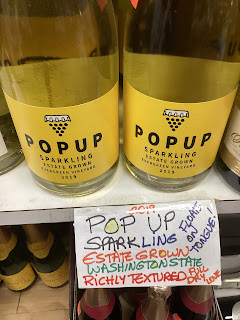 POPUP
SPARKLING
ESTATE GROWN
EVERGREEN VINEYARD
2019
POPUP
SPARKLING
ESTATE GROWN
EVERGREEN VINEYARD
2019
2019
POP UP
SPARKLING
ESTATE GROWN
WASHINGTON STATE
RICHLY TEXTURED
FLOATS
ON
TONGUE
DRY